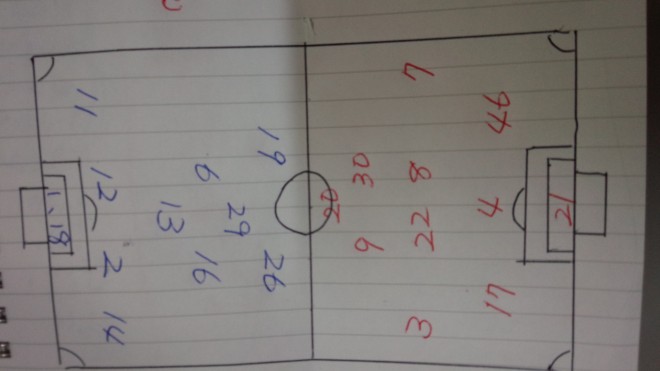 1.18
11
12
2
14
13
6
16
29
19
26
20
30
9
7
8
22
3
44
4
17
21